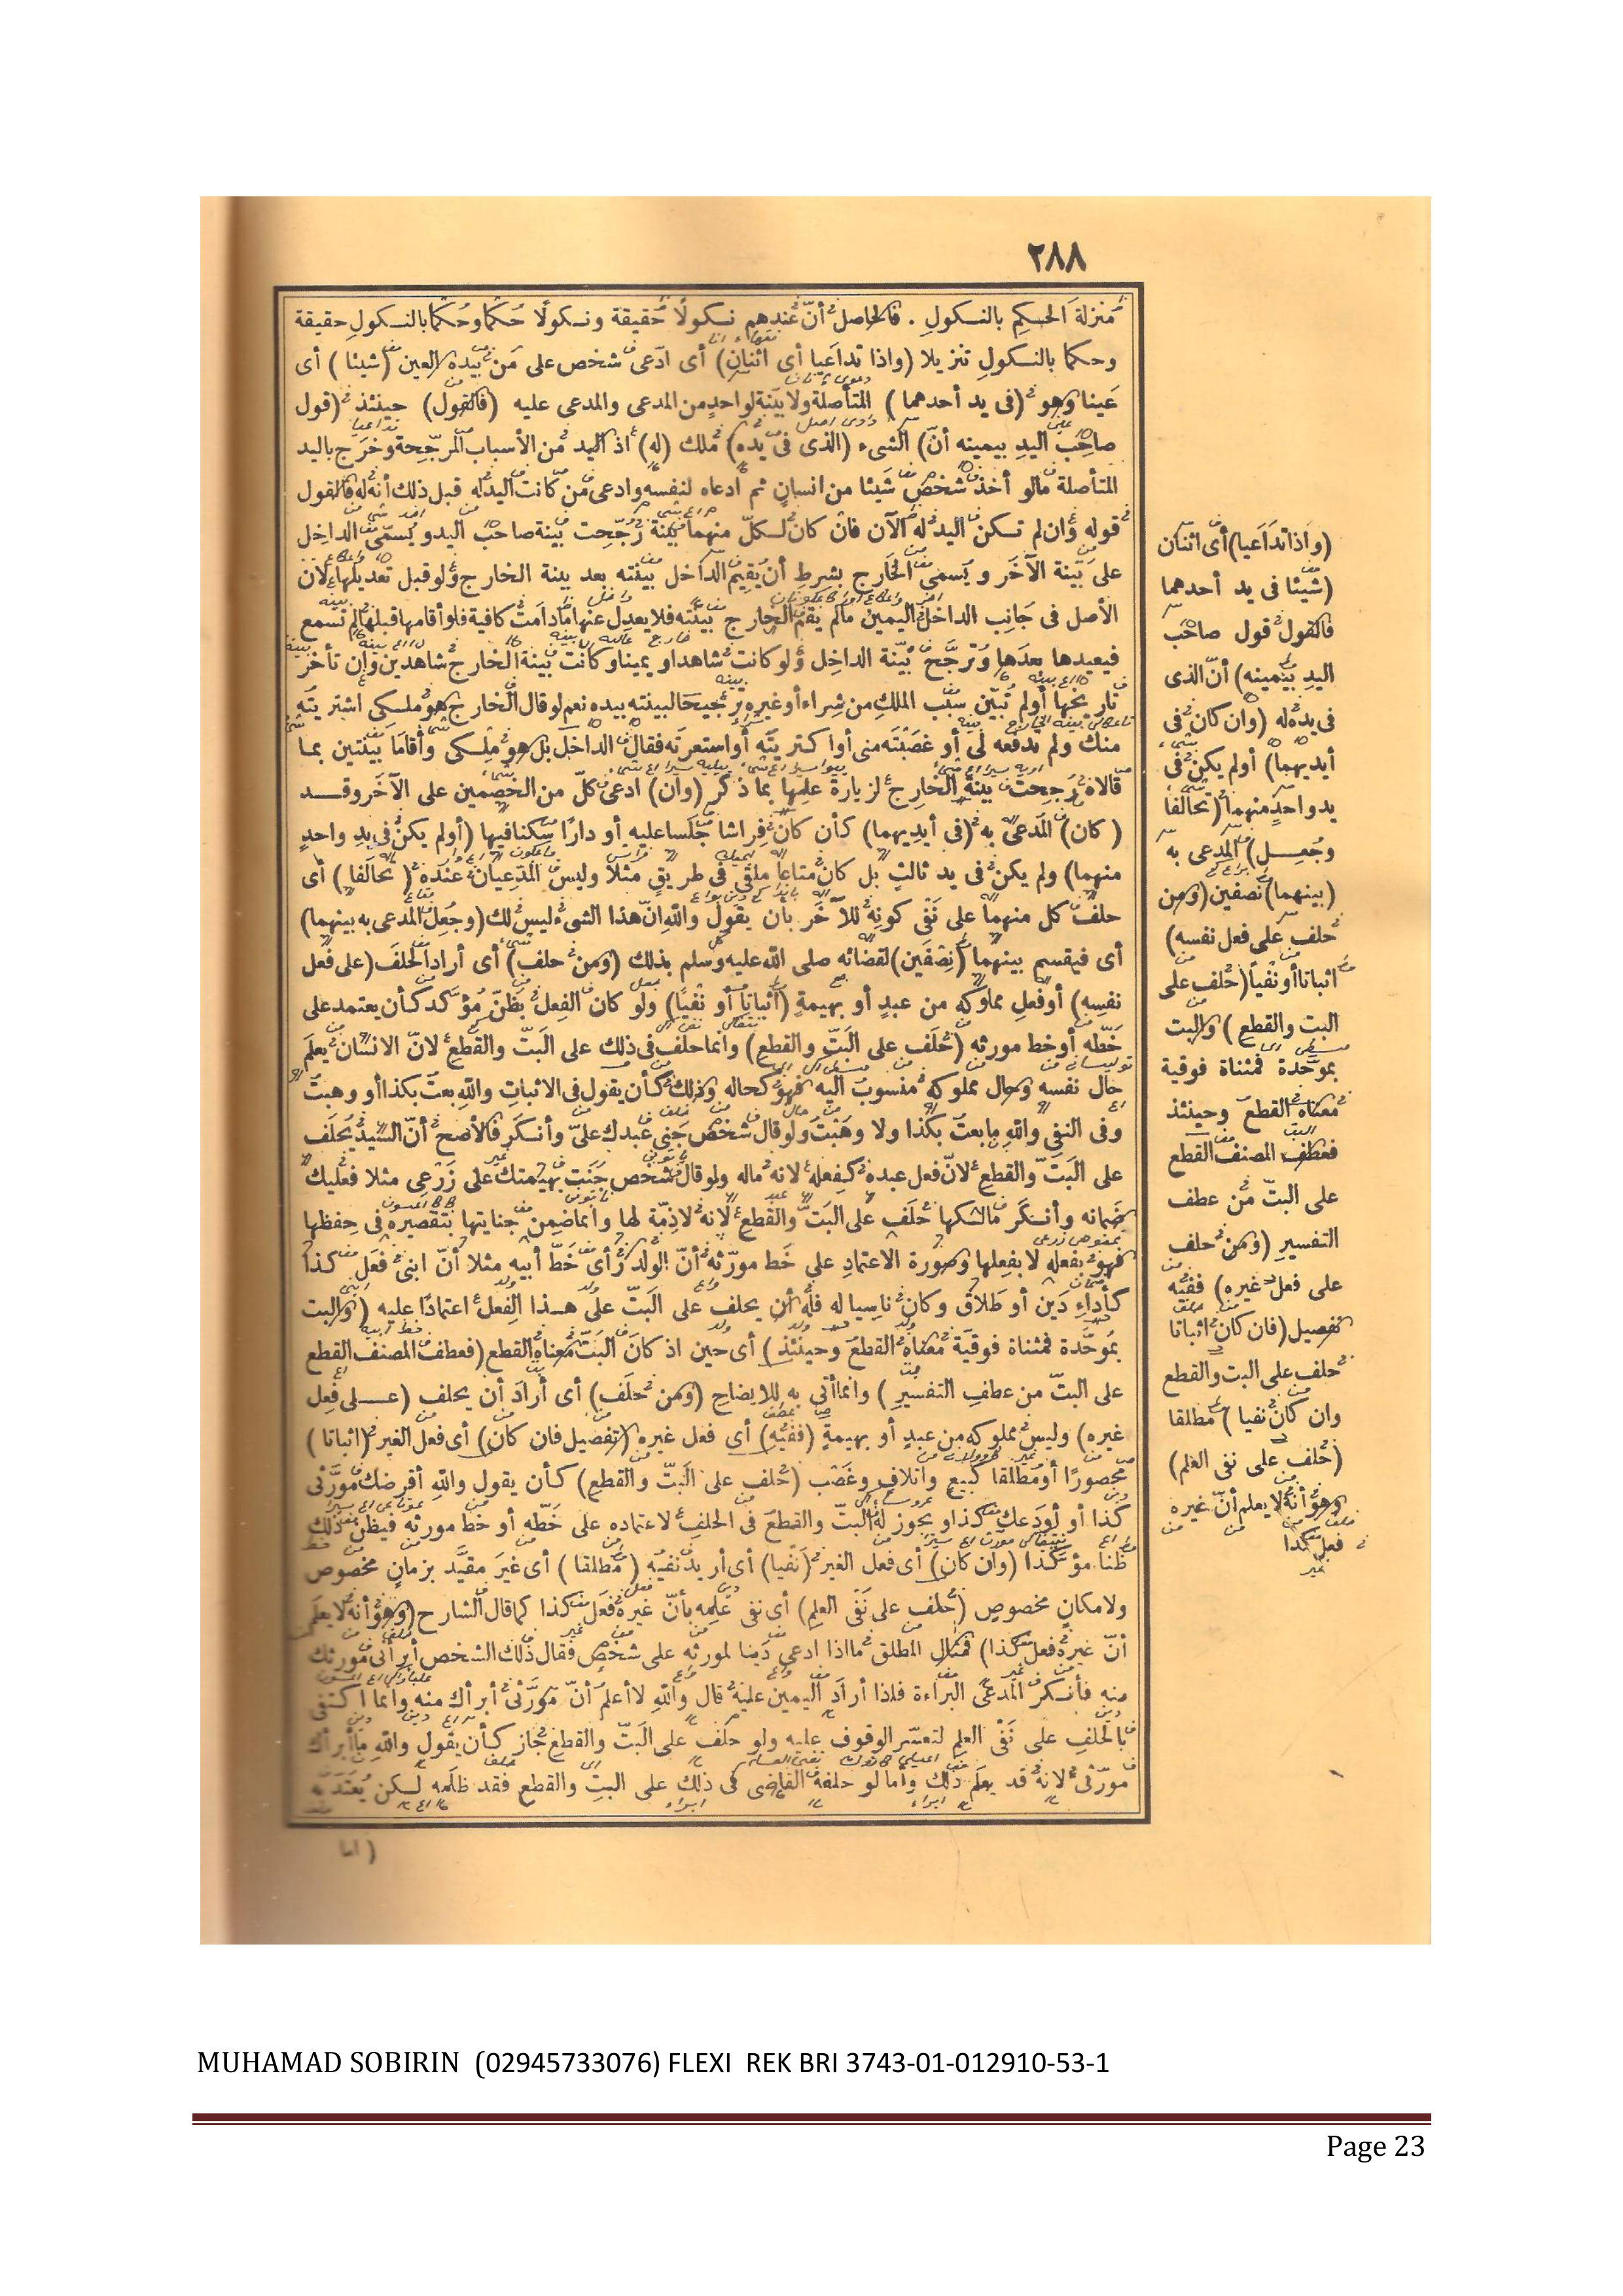 ٢٨٨
منزلة الحكم بالنكول . فالحاصل أنّ عندهم نكولا حقيقة ونكولا حكما وحكما بالنكول حقيقة
وحكما بالنكول تنزيلا (واذا تداعيا أى اثنان) أى ادّعى شخص على من بيده العين (شيئا) أى
عينا وهو (فى يد أحدهما) المتأصلة ولا بينة لواحد من المدعى والمدعى عليه (فالقول) حينئذ (قول
صاحب اليد بيمينه أنّ) الشىء (الذى فى يده) ملك (له) اذ اليد من الأسباب المرجّحة وخرج باليد
المتأصلة مالو أخذ شخص شيئا من انسان ثم ادعاه لنفسه وادعى من كانت اليد له قبل ذلك أنه له فالقول
قوله وان لم تكن اليد له الآن فان كان لكلّ منهما بينة رجّحت بينة صاحب اليد ويسمّى الداخل
على بينة الآخر ويسمى الخارج بشرط أن يقيم الداخل بينته بعد بينة الخارج ولو قبل تعديلها لان
الأصل فى جانب الداخل اليمين مالم يقم الخارج بينته فلا يعدل عنها مادامت كافية فلو أقامها قبلها لم تسمع
فيعيدها بعدها وترجّح بيّنة الداخل ولو كانت شاهدا ويمينا وكانت بينة الخارج شاهدين وإن تأخر
تاريخها أولم تبيّن سبب الملك من شراء أو غيره ترجيحا لبينته بيده نعم لو قال الخارج هو ملكى اشتريته
منك ولم تدفعه لى أو غصبته منى أو اكتريته أو استعرته فقال الداخل بل هو ملكى وأقاما بينتين بما
قالاه رجحت بينة الخارج لزيادة علمها بما ذكر (وان) ادعى كلّ من الخصمين على الآخر وقد
(كان) المدعى به (فى أيديهما) كأن كان فراشا جلسا عليه أو دارا سكنا فيها (أولم يكن فى يد واحد
منهما) ولم يكن فى يد ثالث بل كان متاعا ملقى فى طريق مثلا وليس المدّعيان عنده (تحالفا) أى
حلف كل منهما على نفى كونه للآخر بأن يقول والله إنّ هذا الشىء ليس لك (وجعل المدعى به بينهما)
أى فيقسم بينهما (نصفين) لقضائه صلى الله عليه وسلم بذلك (ومن حلف) أى أراد الحلف (على فعل
نفسه) أو فعل مملوكه من عبد أو بهيمة (اثباتا أو نفيا) ولو كان الفعل بظنّ مؤكد كأن يعتمد على
خطّه أو خط مورثه (حلف على البتّ والقطع) وانما حلف فى ذلك على البتّ والقطع لانّ الانسان يعلم
حال نفسه وحال مملوكه منسوب اليه فهو كحاله وذلك كأن يقول فى الاثبات والله بعت بكذا أو وهبت
وفى النفى والله مابعت بكذا ولا وهبت ولو قال شخص جنى عبدك علىّ وأنكر فالأصح أنّ السيد يحلف
على البتّ والقطع لانّ فعل عبده كفعله لانه ماله ولو قال شخص جنت بهيمتك على زرعى مثلا فعليك
ضمانه وأنكر مالكها حلف على البتّ والقطع لانه لاذمّة لها وانما ضمن جنايتها بتقصيره فى حفظها
فهو بفعله لا بفعلها وصورة الاعتماد على خط مورّثه أنّ الولد رأى خطّ أبيه مثلا أنّ ابنى فعل كذا
كأداء دين أو طلاق وكان ناسيا له فله أن يحلف على البتّ على هذا الفعل اعتمادا عليه (والبت
بموحّدة فمثناة فوقية معناه القطع وحينئذ) أى حين اذ كان البتّ معناه القطع (فعطف المصنف القطع
على البتّ من عطف التفسير) وانما أتى به للايضاح (ومن حلف) أى أراد أن يحلف (على فعل
غيره) وليس مملوكه من عبد أو بهيمة (ففيه) أى فعل غيره (تفصيل فان كان) أى فعل الغير (اثباتا)
محصورا أو مطلقا كبيع واتلاف وغصب (حلف على البتّ والقطع) كأن يقول والله أقرضك مورّثى
كذا أو أودعك كذا ويجوز له البتّ والقطع فى الحلف لاعتماده على خطّه أو خط مورثه فيظن ذلك
ظنا مؤكدا (وان كان) أى فعل الغير (نفيا) أى أريد نفيه (مطلقا) أى غير مقيّد بزمان مخصوص
ولا مكان مخصوص (حلف على نفى العلم) أى نفى علمه بأنّ غيره فعل كذا كما قال الشارح (وهو أنه لا يعلم
أنّ غيره فعل كذا) فمثال المطلق ما اذا ادعى دينا لمورثه على شخص فقال ذلك الشخص أبرأنى مورثك
منه فأنكر المدعى البراءة فاذا أراد اليمين عليه قال والله لا أعلم أنّ مورّثى أبرأك منه وانما اكتفى
بالحلف على نفى العلم لتعسّر الوقوف عليه ولو حلف على البتّ والقطع جاز كأن يقول والله ما أبرأك
مورّثى لانه قد يعلم ذلك وأما لو حلفه القاضى فى ذلك على البتّ والقطع فقد ظلمه لكن يعتد به
(اما
(واذا تداعيا) أى اثنان
(شيئا فى يد أحدهما
فالقول قول صاحب
اليد بيمينه) أنّ الذى
فى يده له (وان كان فى
أيديهما) أولم يكن فى
يد واحد منهما (تحالفا
وجعل) المدعى به
(بينهما) نصفين (ومن
حلف على فعل نفسه)
اثباتا أو نفيا (حلف على
البت والقطع) والبت
بموحّدة فمثناة فوقية
معناه القطع وحينئذ
فعطف المصنف القطع
على البتّ من عطف
التفسير (ومن حلف
على فعل غيره) ففيه
تفصيل (فان كان اثباتا
حلف على البت والقطع
وان كان نفيا) مطلقا
(حلف على نفى العلم)
وهو أنه لا يعلم أنّ غيره
فعل كذا
MUHAMAD SOBIRIN (02945733076) FLEXI REK BRI 3743-01-012910-53-1
Page 23